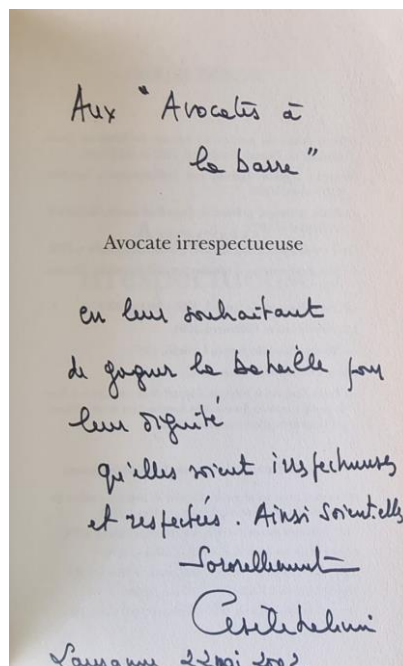 Aux "Avocates à
la barre"
Avocate irrespectueuse
en leur souhaitant
de gagner la bataille pour
leur dignité
qu'elles soient irrespectueuses
et respectées. Ainsi soient-elles
Sororellement
Gisèle Halimi
Lausanne 22 mai